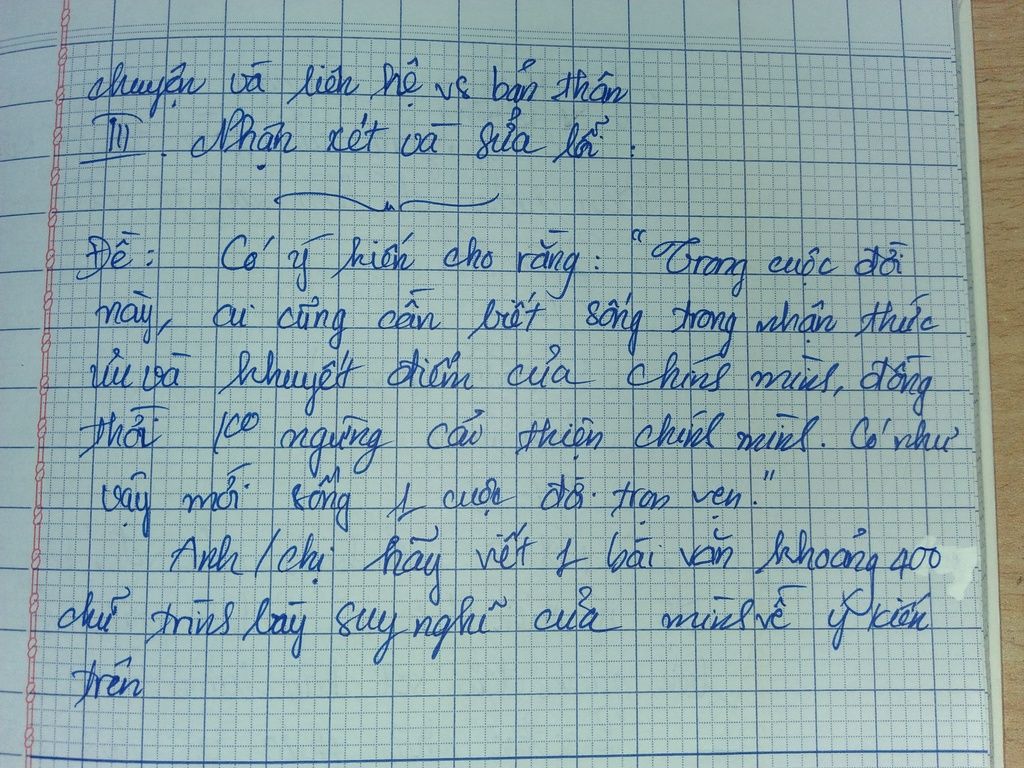 chuyện và liên hệ vs bản thân
III. Nhận xét và sửa lỗi.
Đề: Có ý kiến cho rằng: "Trong cuộc đời
này, ai cũng cần biết sống trong nhận thức
ưu và khuyết điểm của chính mình, đồng
thời ko ngừng cải thiện chính mình. Có như
vậy mới sống 1 cuộc đời trọn vẹn."
Anh/chị hãy viết 1 bài văn khoảng 400
chữ trình bày suy nghĩ của mình về ý kiến
trên